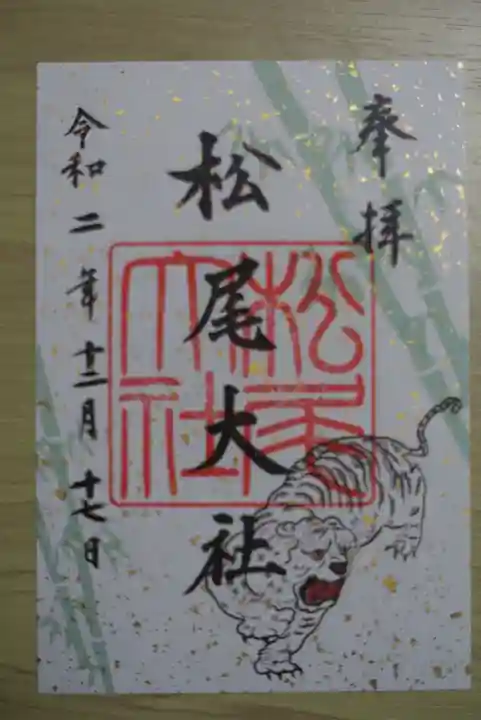 奉拝
松尾大社
松尾大社
令和二年十二月十七日